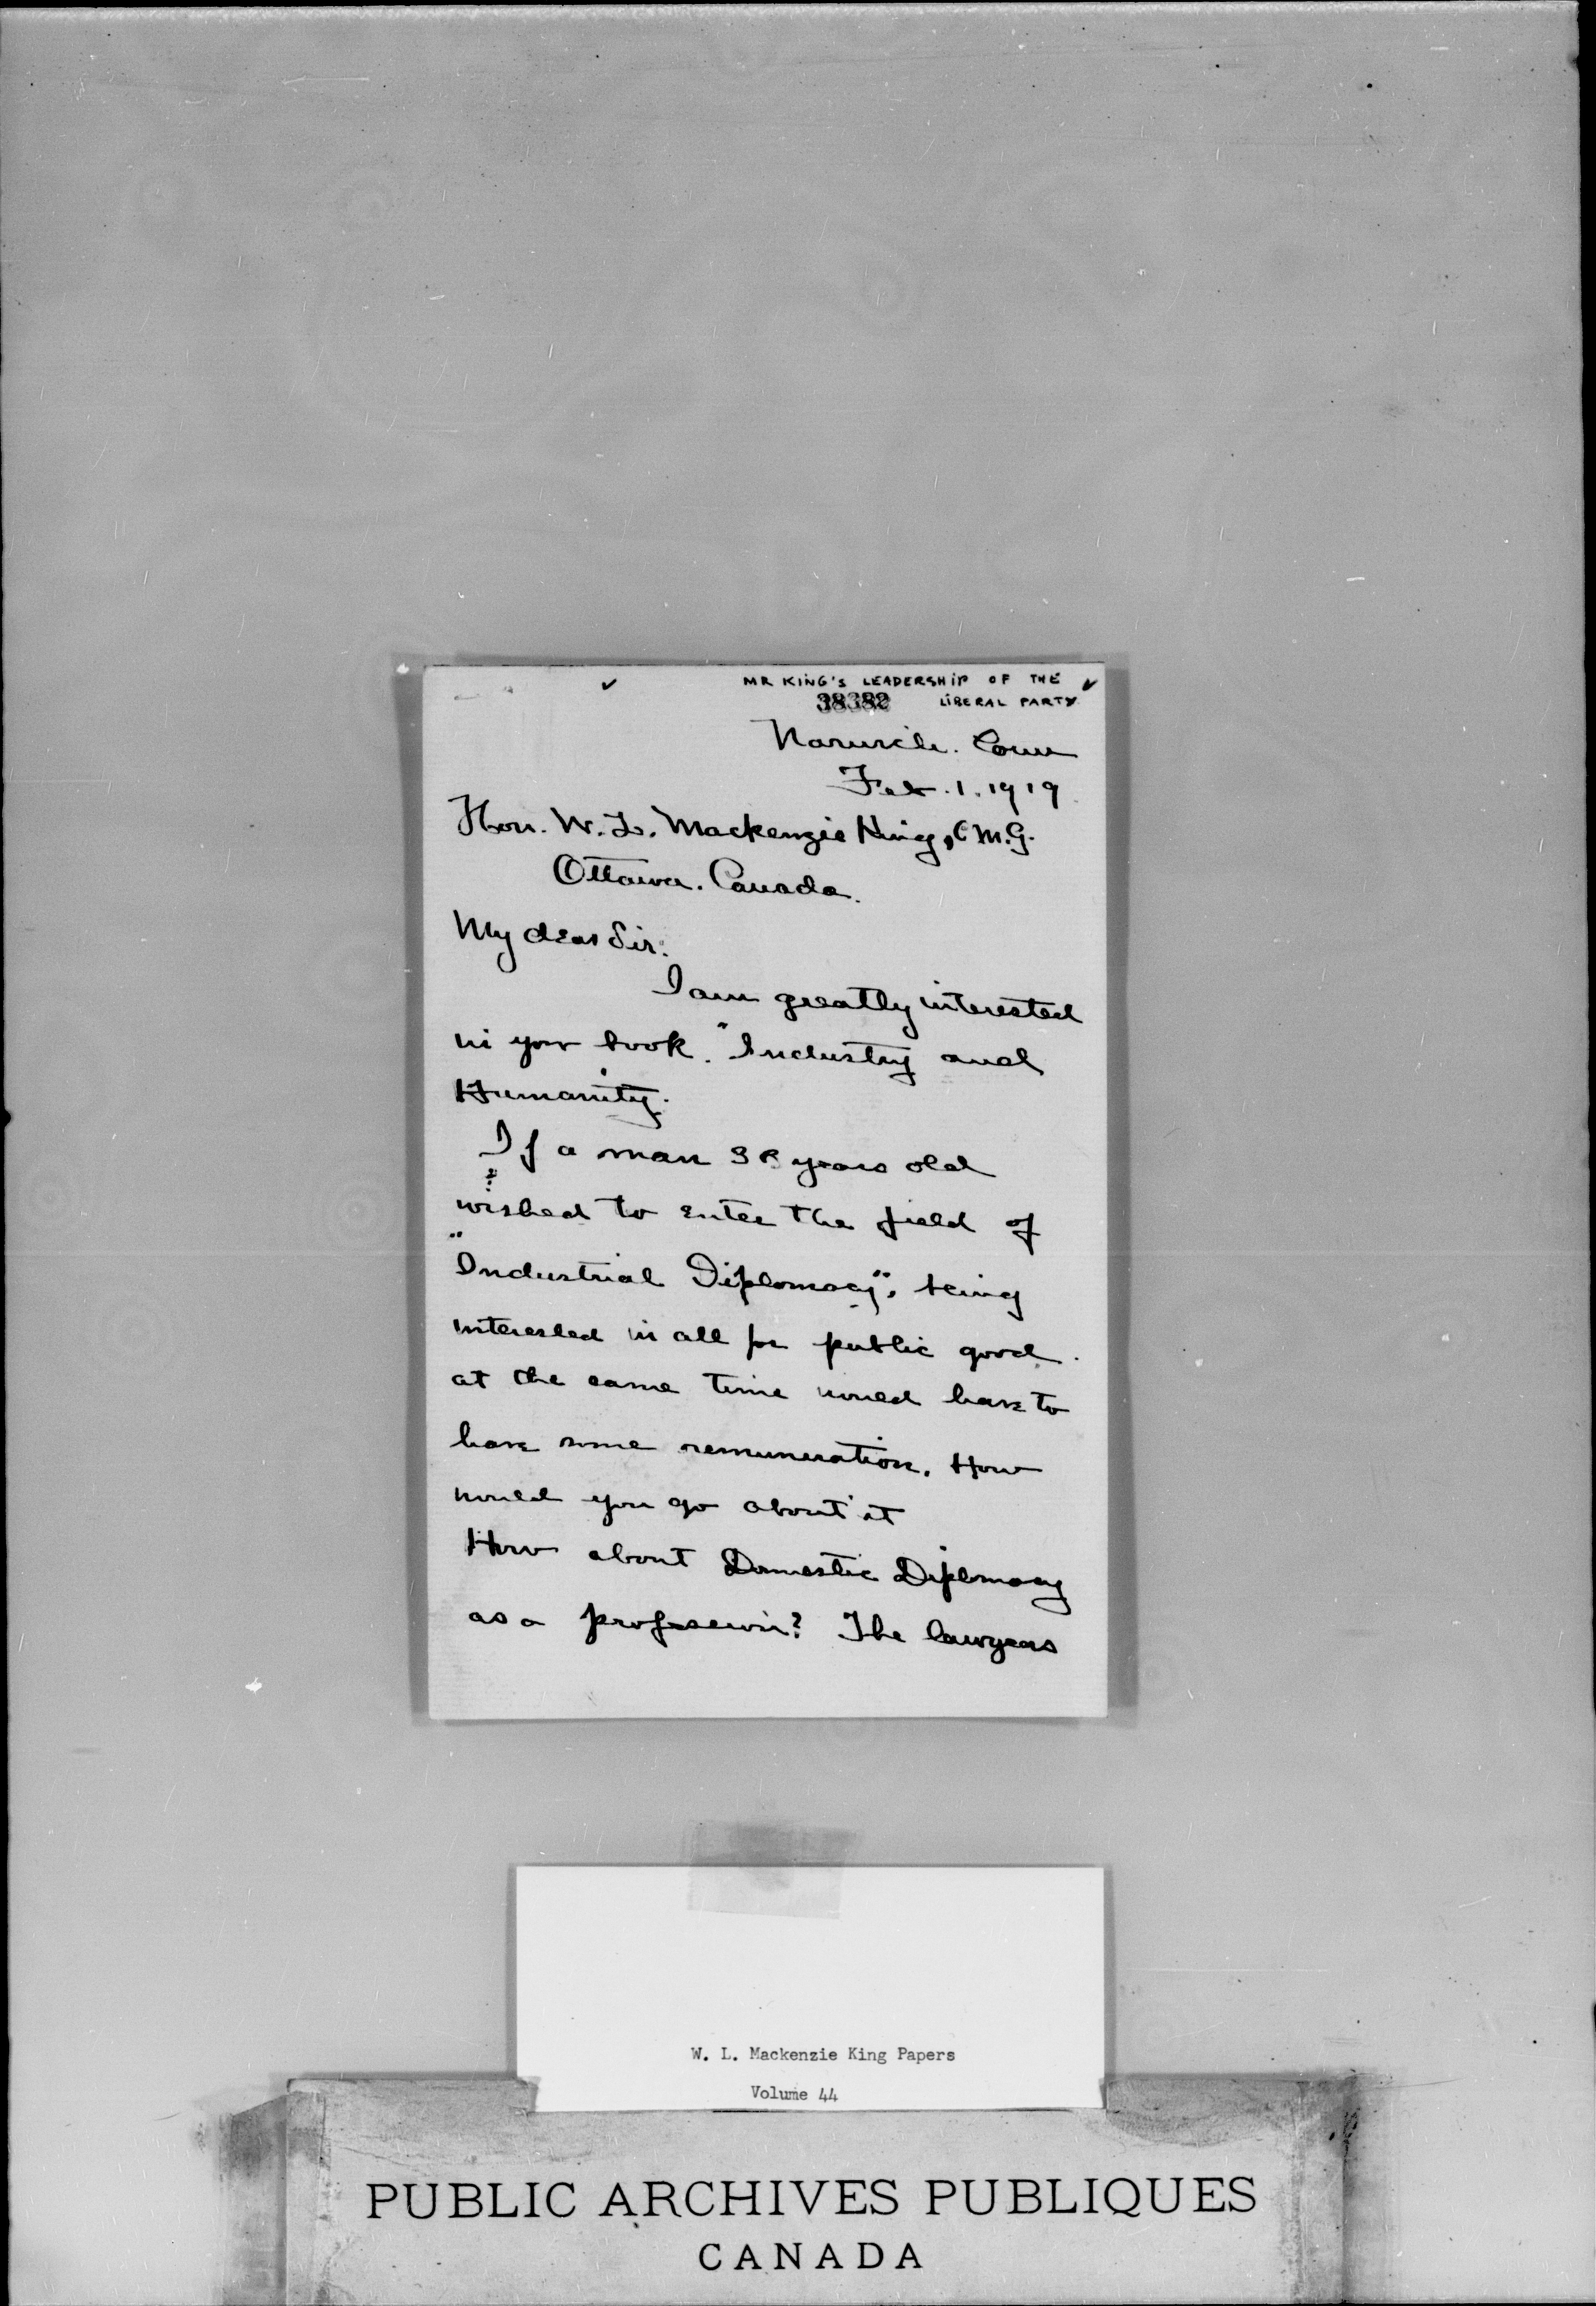 MR KING'S LEADERSHIP OF THE
38382 LIBERAL PARTY
Norwich. Conn
Feb. 1. 1919
Hon. W. L. Mackenzie King, C M.G.
Ottawa. Canada.
My dear Sir:
I am greatly interested
in your book. "Industry and
Humanity."
If a man 38 years old
wished to enter the field of
"Industrial Diplomacy", being
interested in all for public good.
at the same time would have to
have some remuneration. How
would you go about it
How about Domestic Diplomacy
as a profession? The lawyers
W. L. Mackenzie King Papers
Volume 44
PUBLIC ARCHIVES PUBLIQUES
CANADA